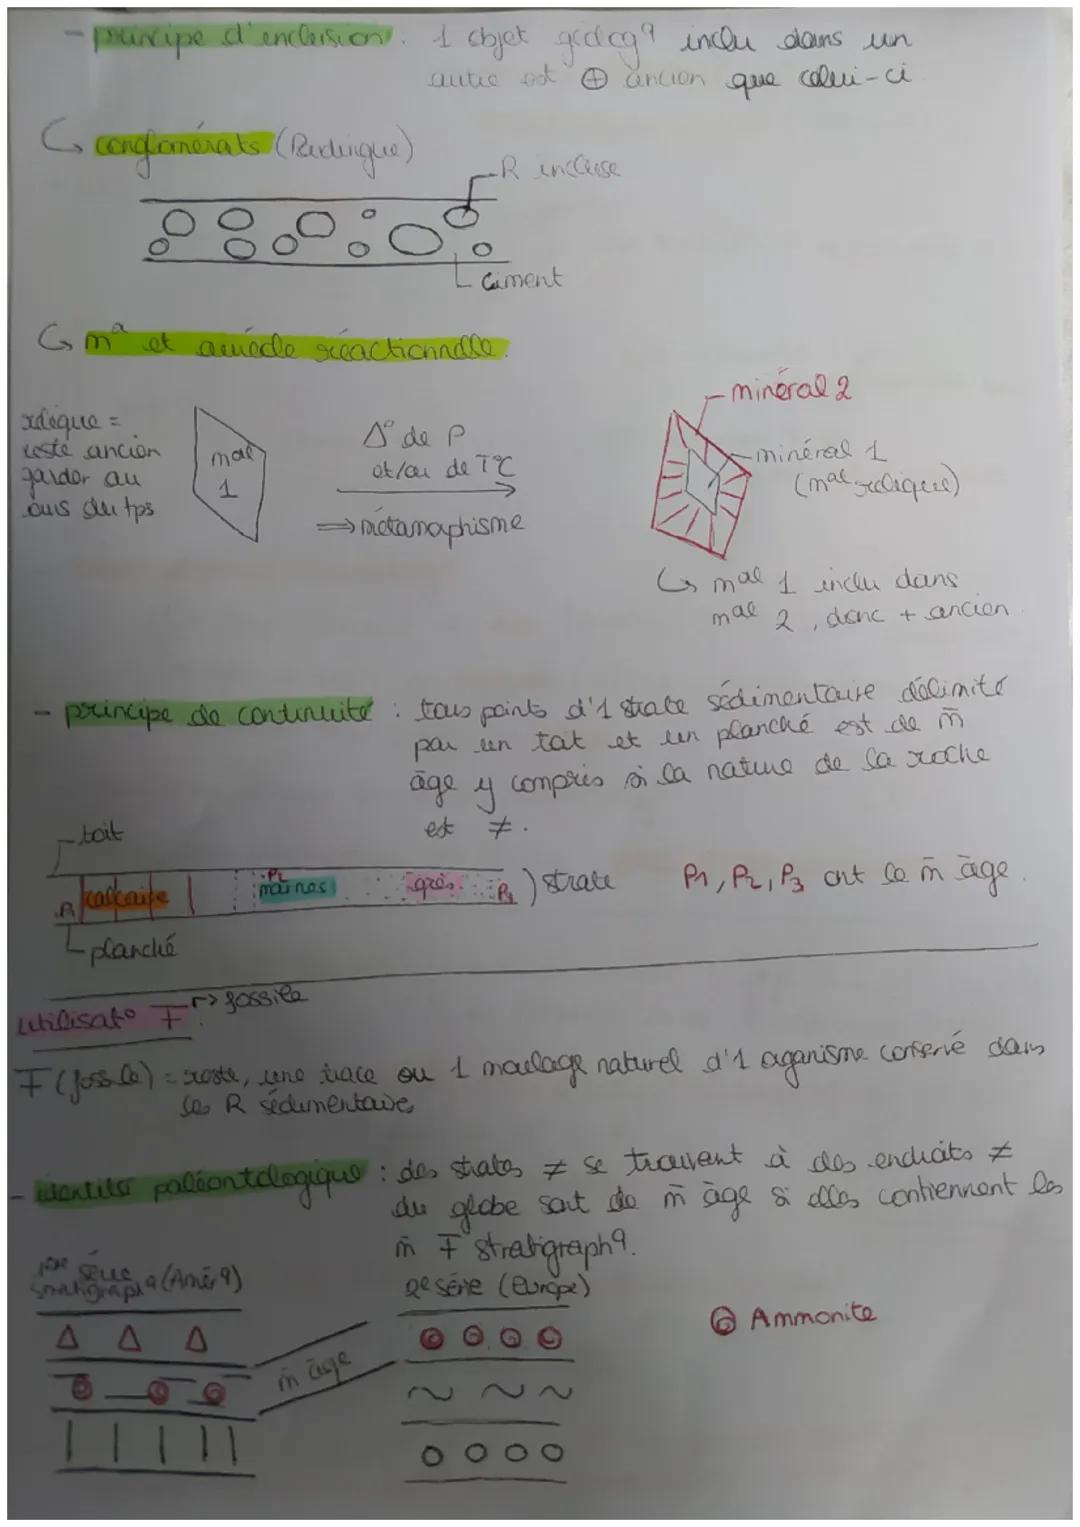 - principe d'inclusion : 1 objet géolog9 inclu dans un
autre est ⊕ ancien que celui-ci
↳ conglomérats (Poudingue)
R incluse
Ciment
↳ mª et auréole réactionnelle.
relique =
reste ancien
garder au
cours du tps
mal
1
Δ° de P
et/ou de T°C
⟹ métamorphisme
minéral 2
minéral 1
(mal relique)
↳ mal 1 inclu dans
mal 2, donc + ancien
- principe de continuité : tous points d'1 strate sédimentaire délimité
par un toit et un planché est de m̄
âge y compris si la nature de la roche
est ≠.
toit
P1 calcaire P2 marnes grès P3 ) strate P1, P2, P3 ont le m̄ âge.
planché
utilisat° F : → fossile
F (fossile) = reste, une trace ou 1 moulage naturel d'1 organisme conservé dans
les R sédimentaire
- identité paléontologique : des strates ≠ se trouvent à des endroits ≠
du globe sont de m̄ âge si elles contiennent les
m̄ F stratigraph9.
1ère série
stratigraph9 (Amér9)
2e série (Europe)
Ammonite
m̄ âge